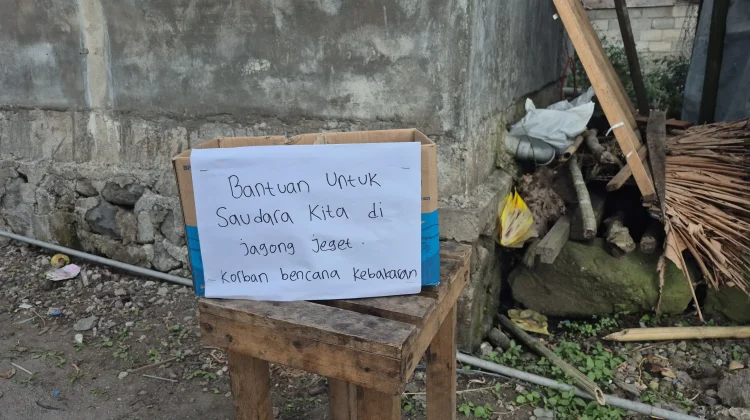 Bantuan Untuk
Saudara Kita di
Jagong Jeget.
Korban bencana Kebakaran